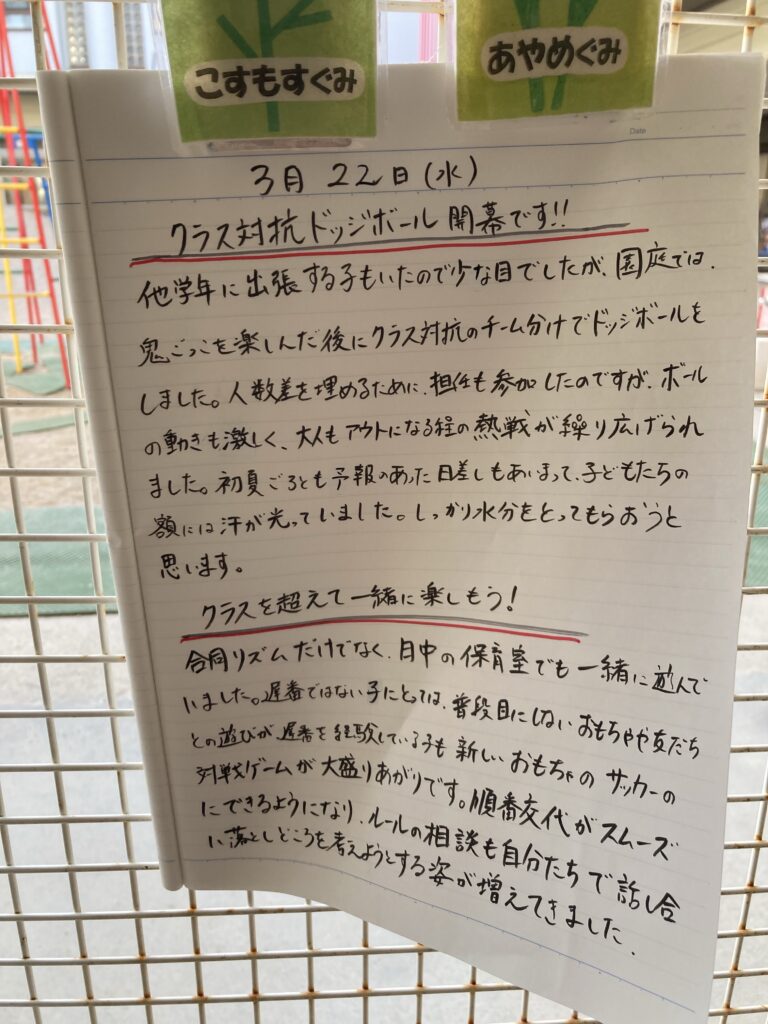 こすもすぐみ
あやめぐみ
Date
3月22日(水)
クラス対抗ドッジボール開幕です!!
他学年に出張する子もいたので少な目でしたが、園庭では、
鬼ごっこを楽しんだ後にクラス対抗のチーム分けでドッジボールを
しました。人数差を埋めるために、担任も参加したのですが、ボール
の動きも激しく、大人もアウトになる程の熱戦が繰り広げられ
ました。初夏ごろとも予報のあった日差しもあいまって、子どもたちの
額には汗が光っていました。しっかり水分をとってもらおうと
思います。
クラスを超えて一緒に楽しもう!
合同リズムだけでなく、日中の保育室でも一緒に遊んで
いました。遅番ではない子にとっては、普段目にしないおもちゃや友だち
との遊びが、遅番を経験している子も新しいおもちゃのサッカーの
対戦ゲームが大盛りあがりです。順番交代がスムーズ
にできるようになり、ルールの相談も自分たちで話し合
い落としどころを考えようとする姿が増えてきました。